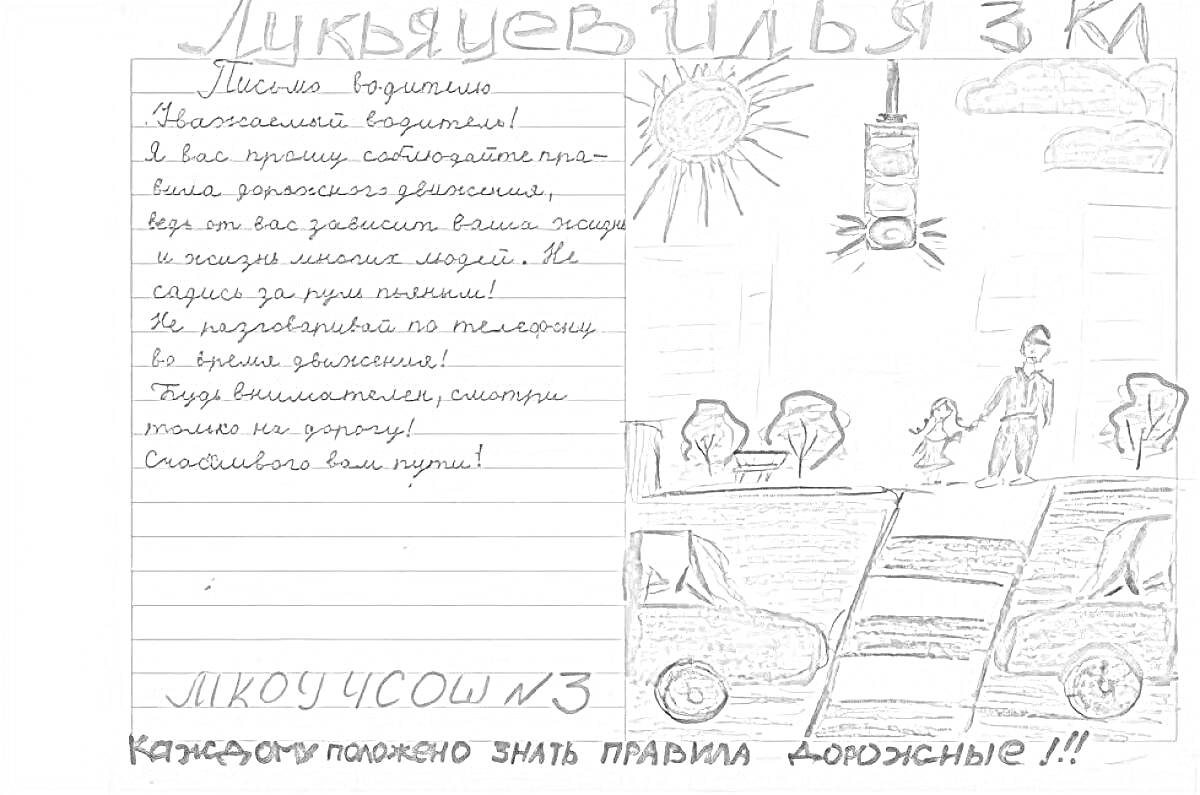 Лукьяцев Илья 3 кл
Письмо водителю
Уважаемый водитель!
Я вас прошу соблюдайте пра-
вила дорожного движения,
ведь от вас зависит ваша жизнь
и жизнь многих людей. Не
садись за руль пьяным!
Не разговаривай по телефону
во время движения!
Будь внимателен, смотри
только на дорогу!
Счастливого вам пути!
МКОУ ЧСОШ №3
Каждому положено знать правила дорожные!!!